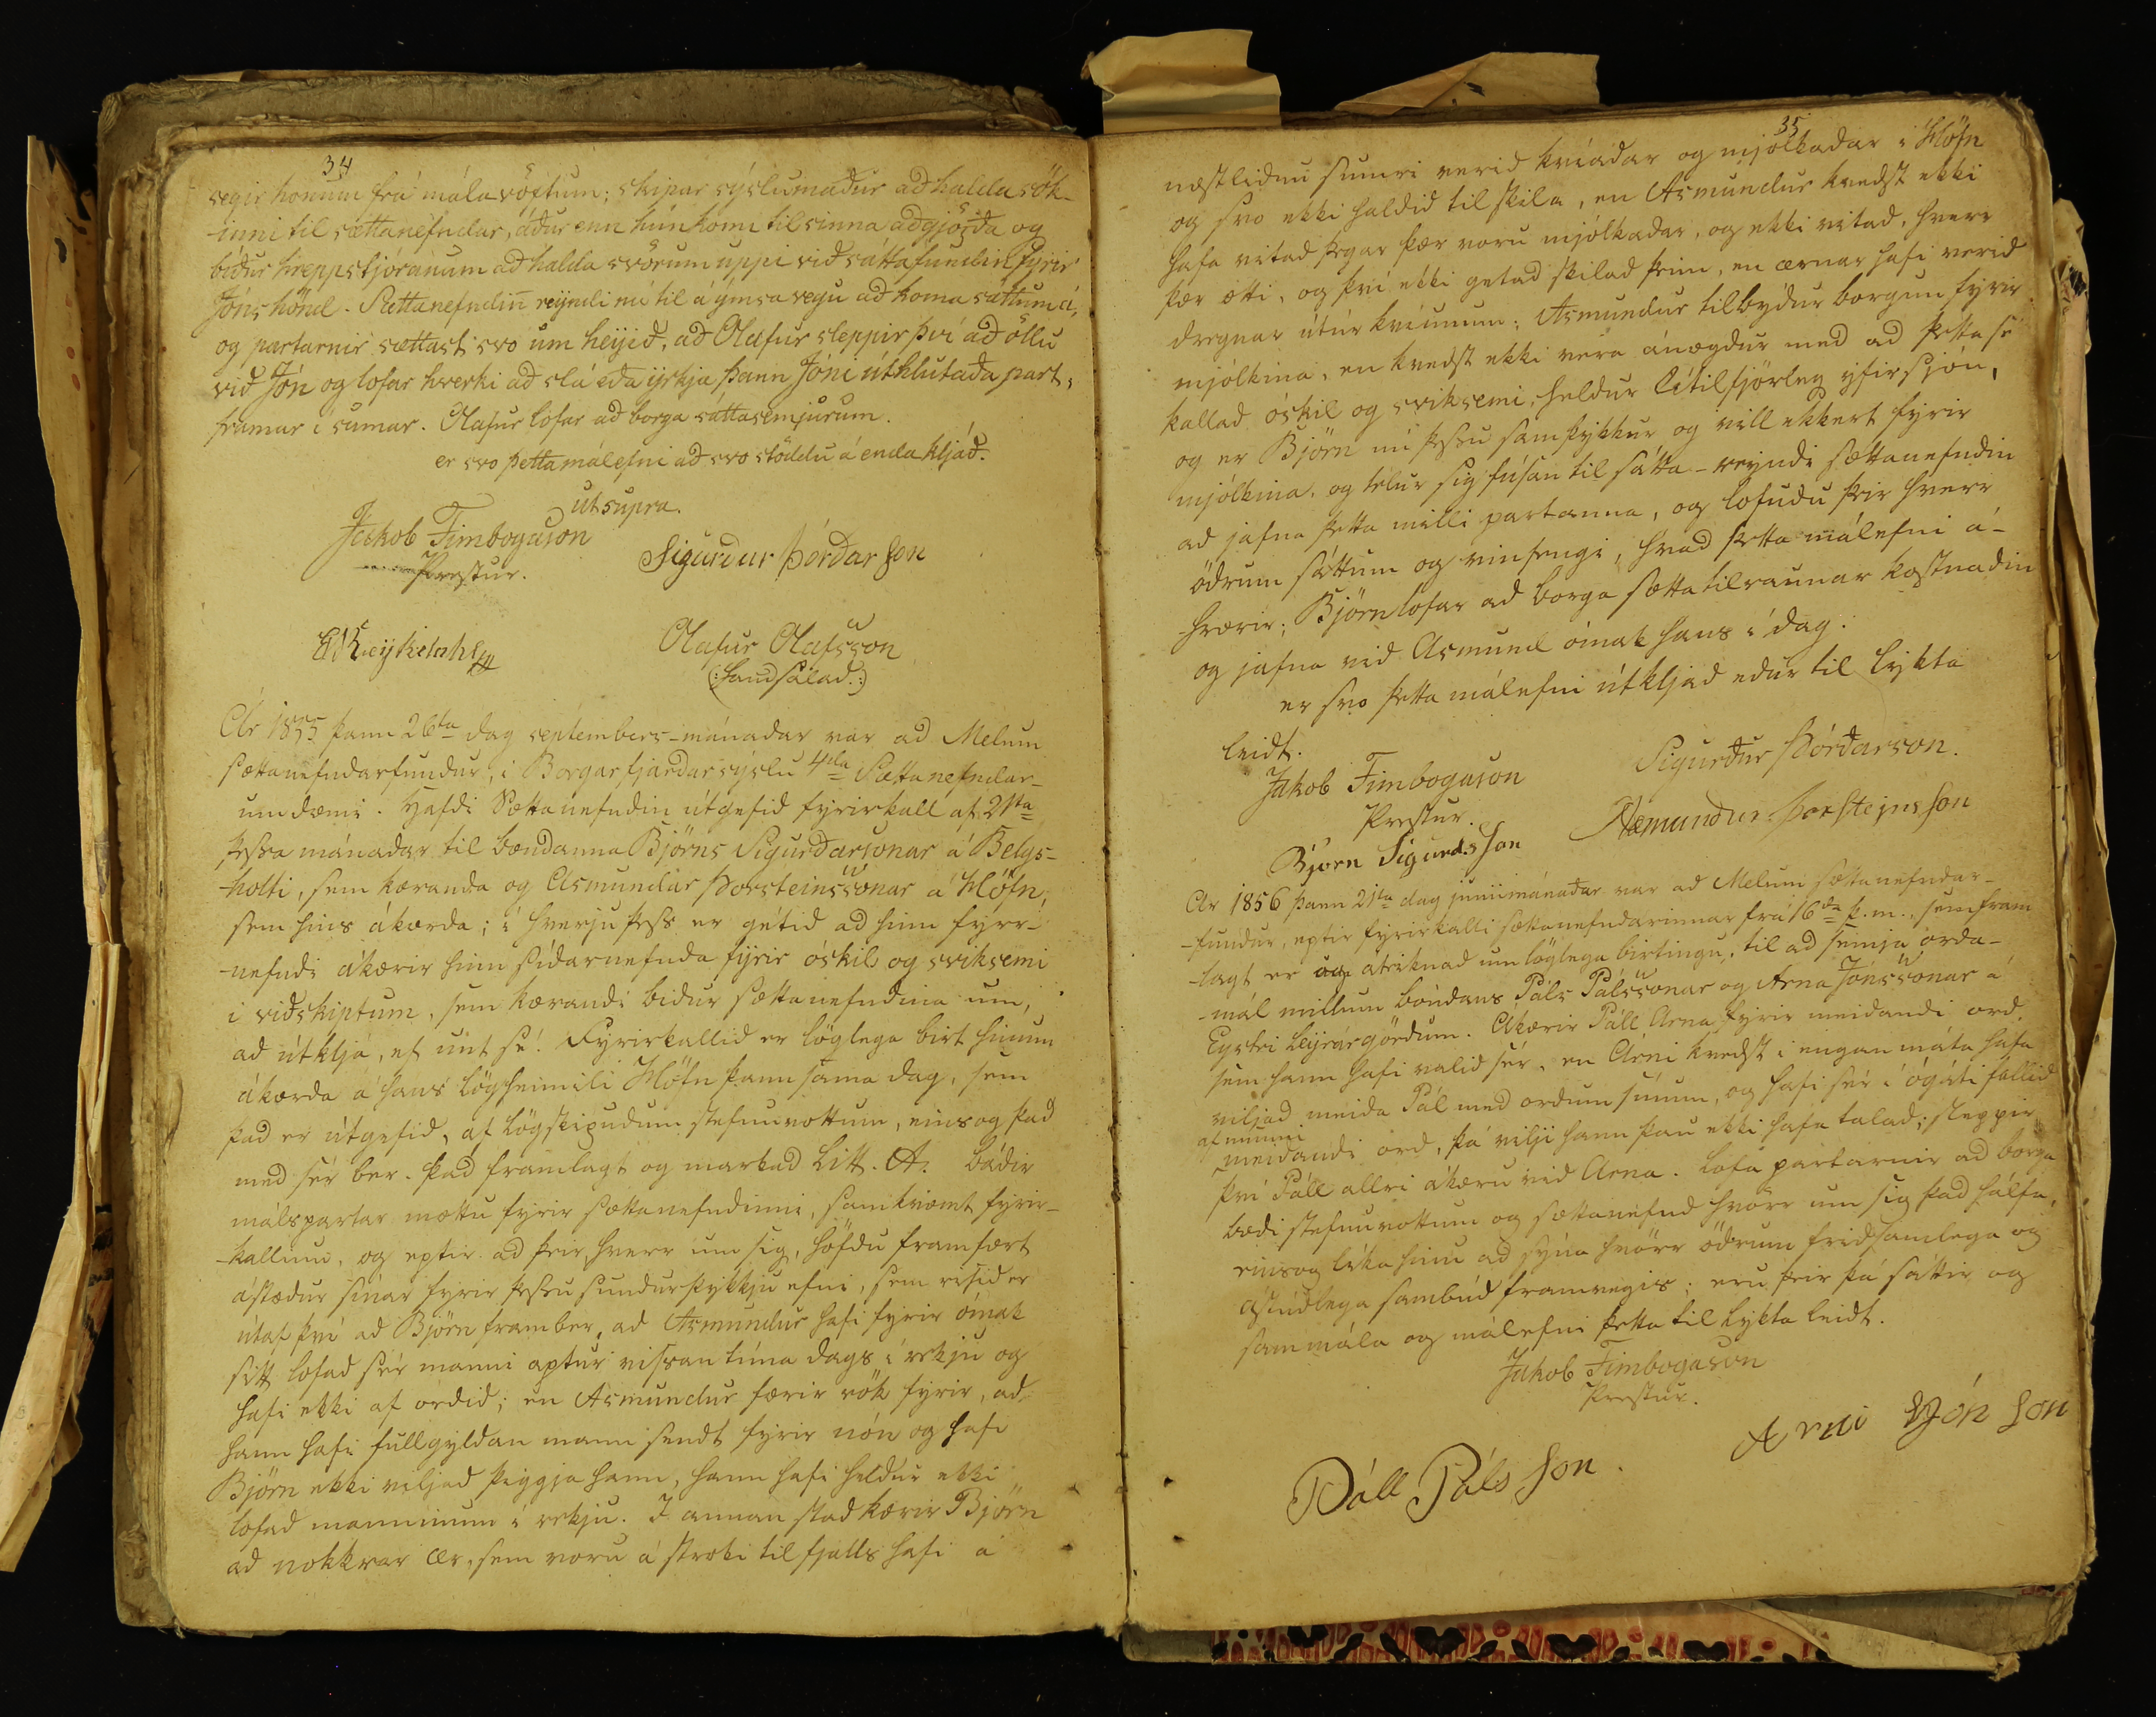 34
segir honum frá málavöxtum; skipar sýslumaður að halda sök-
inni til sættanefndar, áður enn hún komi til sinna aðgjörða og
biður hreppstjóranum að halda svörum uppi við sáttafundin fyrir
Jóns hönd. Sættanefndin reyndi nú til á ýmsa vegu að koma sáttum á,
og partarnir sættast svo um heyið, að Olafur sleppir því að öllu
við Jón og lofar hverki að slá eða yrkja þann Jóni úthlutaða part,
framar í sumar. Olafur lofar að borga sáttasemjurum.
er svo þetta málefni að svo stöddu á enda kljáð.
ut supra.
Jakob Finnbogason
Prestur.
Sigurður Þórðar Son
Olafur Olafsson
(:handsalað:)
Ár 1855 þann 26ta dag septembers-mánadar var ad Melum
sættanefndarfundur, í Borgarfjarðarsýslu 4da Sættanefndar-
umdæmi. Hafdi Sættanefndin útgefid fyrirkall af 21ta
þessa mánadar til bændanna Björns Sigurðarsonar á Belgs-
holti, sem kæranda og Asmundar Þorsteinssonar á Höfn,
sem hins ákærda; í hverju þess er gétid ad hinn fyrr-
nefndi ákærir hinn sídarnefnda fyrir óskil og sviksemi
i viðskiptum, sem kærandi bidur sættanefndina um,
ad útkljá, ef unt sé. Fyrirkallid er löglega birt hinum
ákærda á hans lögheimili Höfn þann sama dag, sem
þad er útgefid, af lögskipudum stefnuvottum, eins og þad
med sér ber. þad framlagt og markad Litt. A. bádir
málspartar mættu fyrir sættanefndinni, samkvæmt fyrir-
kallinu, og eptir ad þeir, hverr um sig, höfdu framfært
ástædur sínar fyrir þessu sundurþykkju efni, sem risid er
útaf því ad Björn framber, ad Asmundur hafi fyrir ómak
sitt lofad sér manni aptur vissan tíma dags í rekju og
hafi ekki af ordid; en Asmundur færir rök fyrir, ad
hann hafi fullgyldan mann sendt fyrir nón og hafi
Björn ekki viljad þiggja hann, hann hafi heldur ekki
lofad manninum í rekju. I annan stad kærir Björn
ad nokkrar ær, sem voru á stroki til fjalls hafi á
35
næstlidnu sumri verid kvíadar og mjólkadar í Höfn
og svo ekki haldid til skila, en Asmundur kvedst ekki
hafa vitad þegar þær voru mjólkadar, og ekki vitad, hverr
þær átti, og því ekki getad skilad þeim, en ærnar hafi verid
dregnar útúr kvíunum; Asmundur tilbýdur borgun fyrir
mjólkina, en kvedst ekki vera ánægdur med ad þetta sé
kallad óskil og sviksemi, heldur lítilfjörleg yfirsjón,
og er Björn nú þessu samþykkur og vill ekkert fyrir
mjólkina, og telur sig fúsan til sátta - reyndi sættanefndin
ad jafna þetta milli partanna, og lofudu þeir hverr
ödrum sáttum og vinfengi, hvad þetta málefni á-
hrærir; Björn lofar ad borga sættatilraunar kostnadin
og jafna vid Asmund ómak hans í dag.
er svo þetta málefni útkljád edur til lykta
leidt.
Jakob Finnbogason
Prestur.
Sigurður Þórðarson.
Björn Sigurds Son
Asmundur Þorsteins Son
Ár 1856 þann 21ta dag júniimánaðar var ad Melum sættanefndar-
fundur, eptir fyrirkalli sættanefndarinnar frá 16da þ.m., sem fram
lagt er og áteiknad um löglega birtingu, til ad semja orda-
mál millum bóndans Páls Pálssonar og Arna Jónssonar á
Eystri Leyrárgördum. Akærir Páll Arna fyrir meidandi ord,
sem hann hafi valid sér, en Arni kvedst í engan máta hafa
viljad meida Pál med ordum sínum, og hafi sér í ógáti fallid
af munni
meidandi ord, þá vilji hann þau ekki hafa talad; sleppir
því Páll allri ákæru vid Arna. Lofa partarnir ad borga
bædi stefnuvottum og sættanefnd hvörr um sig þad hálfa,
eins og líka hinu ad sýna hvörr ödrum fridsamlega og
ástúdlega sambúd framvegis; eru þeir þá sáttir og
sammála og málefni þetta til lykta leidt.
Jakob Finnbogason
Prestur.
Páll Páls Son.
Arni Jón Son